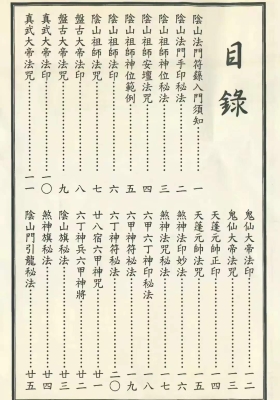 目錄
陰山法門符籙入門須知……一
陰山法門手印秘法……二
陰山祖師神位秘法……三
陰山祖師安壇法咒……四
陰山祖師神位範例……五
陰山祖師法印……六
陰山祖師法咒……七
盤古大帝法印……八
盤古大帝法咒……九
真武大帝法印……一〇
真武大帝法咒……一一
鬼仙大帝法印……一二
鬼仙大帝法咒……一三
天蓬元帥正印……一四
天蓬元帥法咒……一五
煞神法印妙法……一六
煞神法咒秘法……一七
六甲六丁神印秘法……一八
六甲神符秘法……一九
六丁神符秘法……二〇
廿八宿六甲神咒……廿一
六丁神兵六甲神將……廿二
陰山旗秘法……廿三
煞神旗秘法……廿四
陰山門引龍秘法……廿五